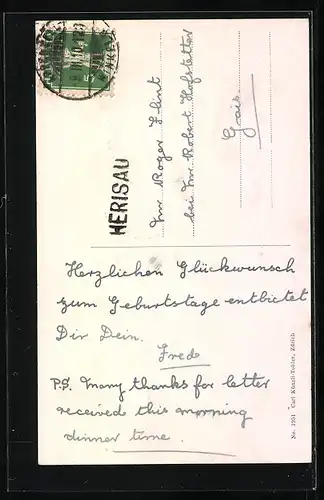 HERISAU
Roger Flint
bei Robert Hofstetter
Gais.
Herzlichen Glückwunsch
zum Geburtstage entbietet
Dir Dein.
Fred
P.S. Many thanks for letter
received this morning
dinner time.
No. 1951 Carl Künzli-Tobler, Zürich